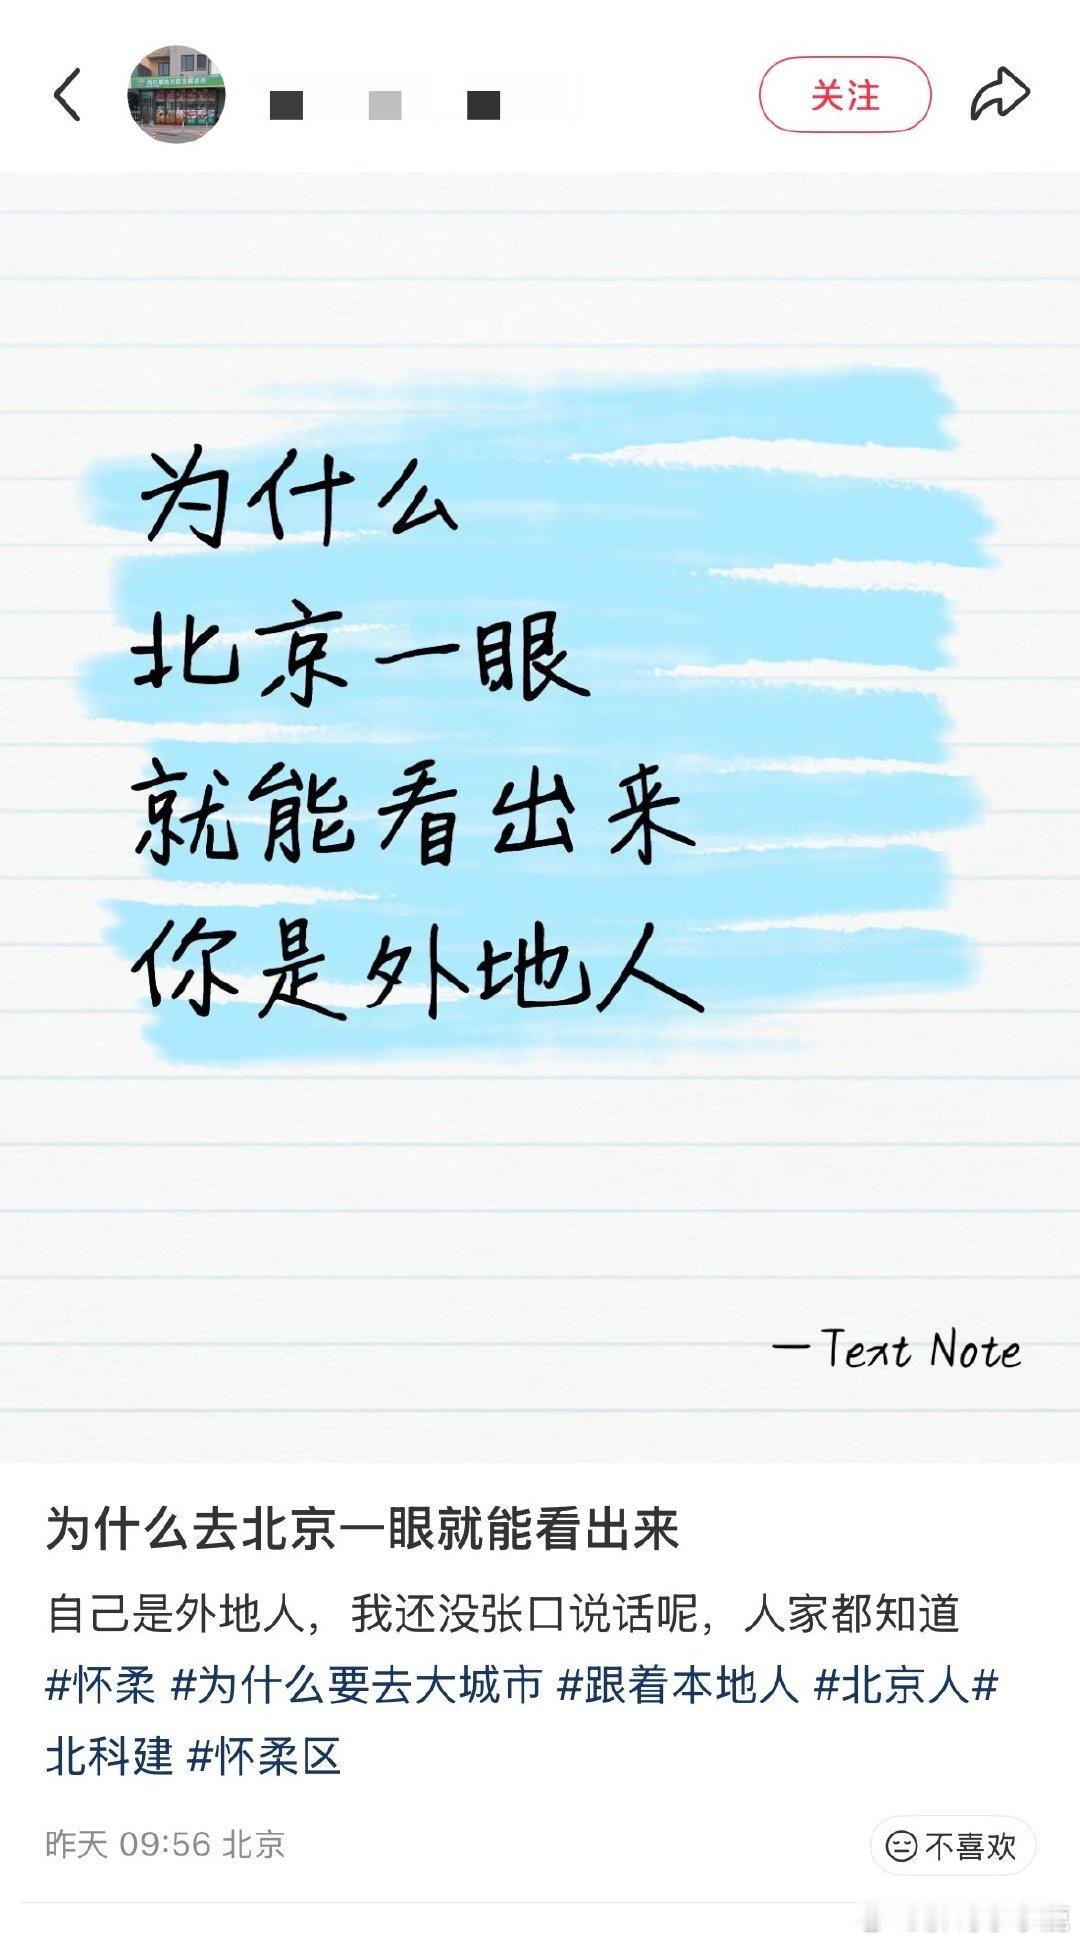 关注
为什么
北京一眼
就能看出来
你是外地人
—Text Note
为什么去北京一眼就能看出来
自己是外地人，我还没张口说话呢，人家都知道
#怀柔 #为什么要去大城市 #跟着本地人 #北京人#
北科建 #怀柔区
昨天 09:56 北京
不喜欢